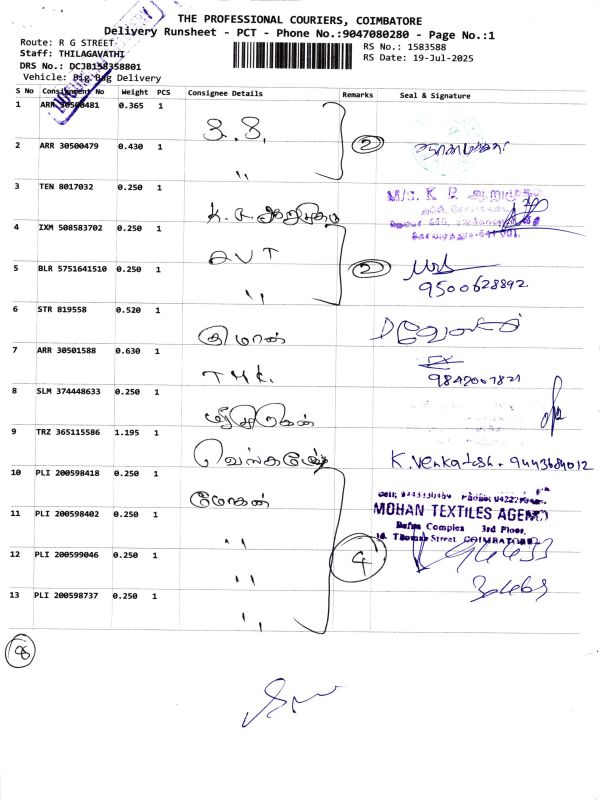 THE PROFESSIONAL COURIERS, COIMBATORE
Delivery Runsheet - PCT - Phone No.:9047080280 - Page No.:1
Route: R G STREET
RS No.: 1583588
Staff: THILAGAVATHI
RS Date: 19-Jul-2025
DRS No.: DCJB158358801
Vehicle: Big Bag Delivery
S No Consignment No Weight PCS Consignee Details Remarks Seal & Signature
1 ARR 30500481 0.365 1
2 ARR 30500479 0.430 1 ,, 2
3 TEN 8017032 0.250 1
M/s. K. P.
641 001.
4 IXM 508583702 0.250 1 AVT
5 BLR 5751641510 0.250 1 ,, 2 9500628892
6 STR 819558 0.520 1
7 ARR 30501588 0.630 1 TMK. 9842007821
8 SLM 374448633 0.250 1
9 TRZ 365115586 1.195 1 K. Venkatesh.
10 PLI 200598418 0.250 1 மோகன்
MOHAN TEXTILES AGENCY
11 PLI 200598402 0.250 1 ,,
Complex 3rd Floor,
Thomas Street, COIMBATORE
12 PLI 200599046 0.250 1 ,, 4
13 PLI 200598737 0.250 1 ,,
8